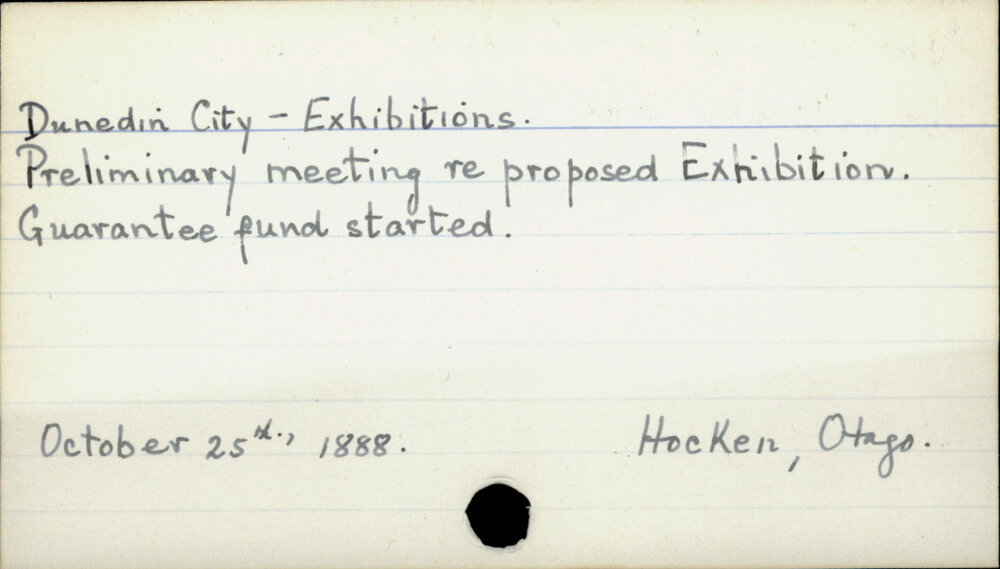 Dunedin City - Exhibitions.
Preliminary meeting re proposed Exhibition.
Guarantee fund started.
October 25th., 1888.
Hocken, Otago.